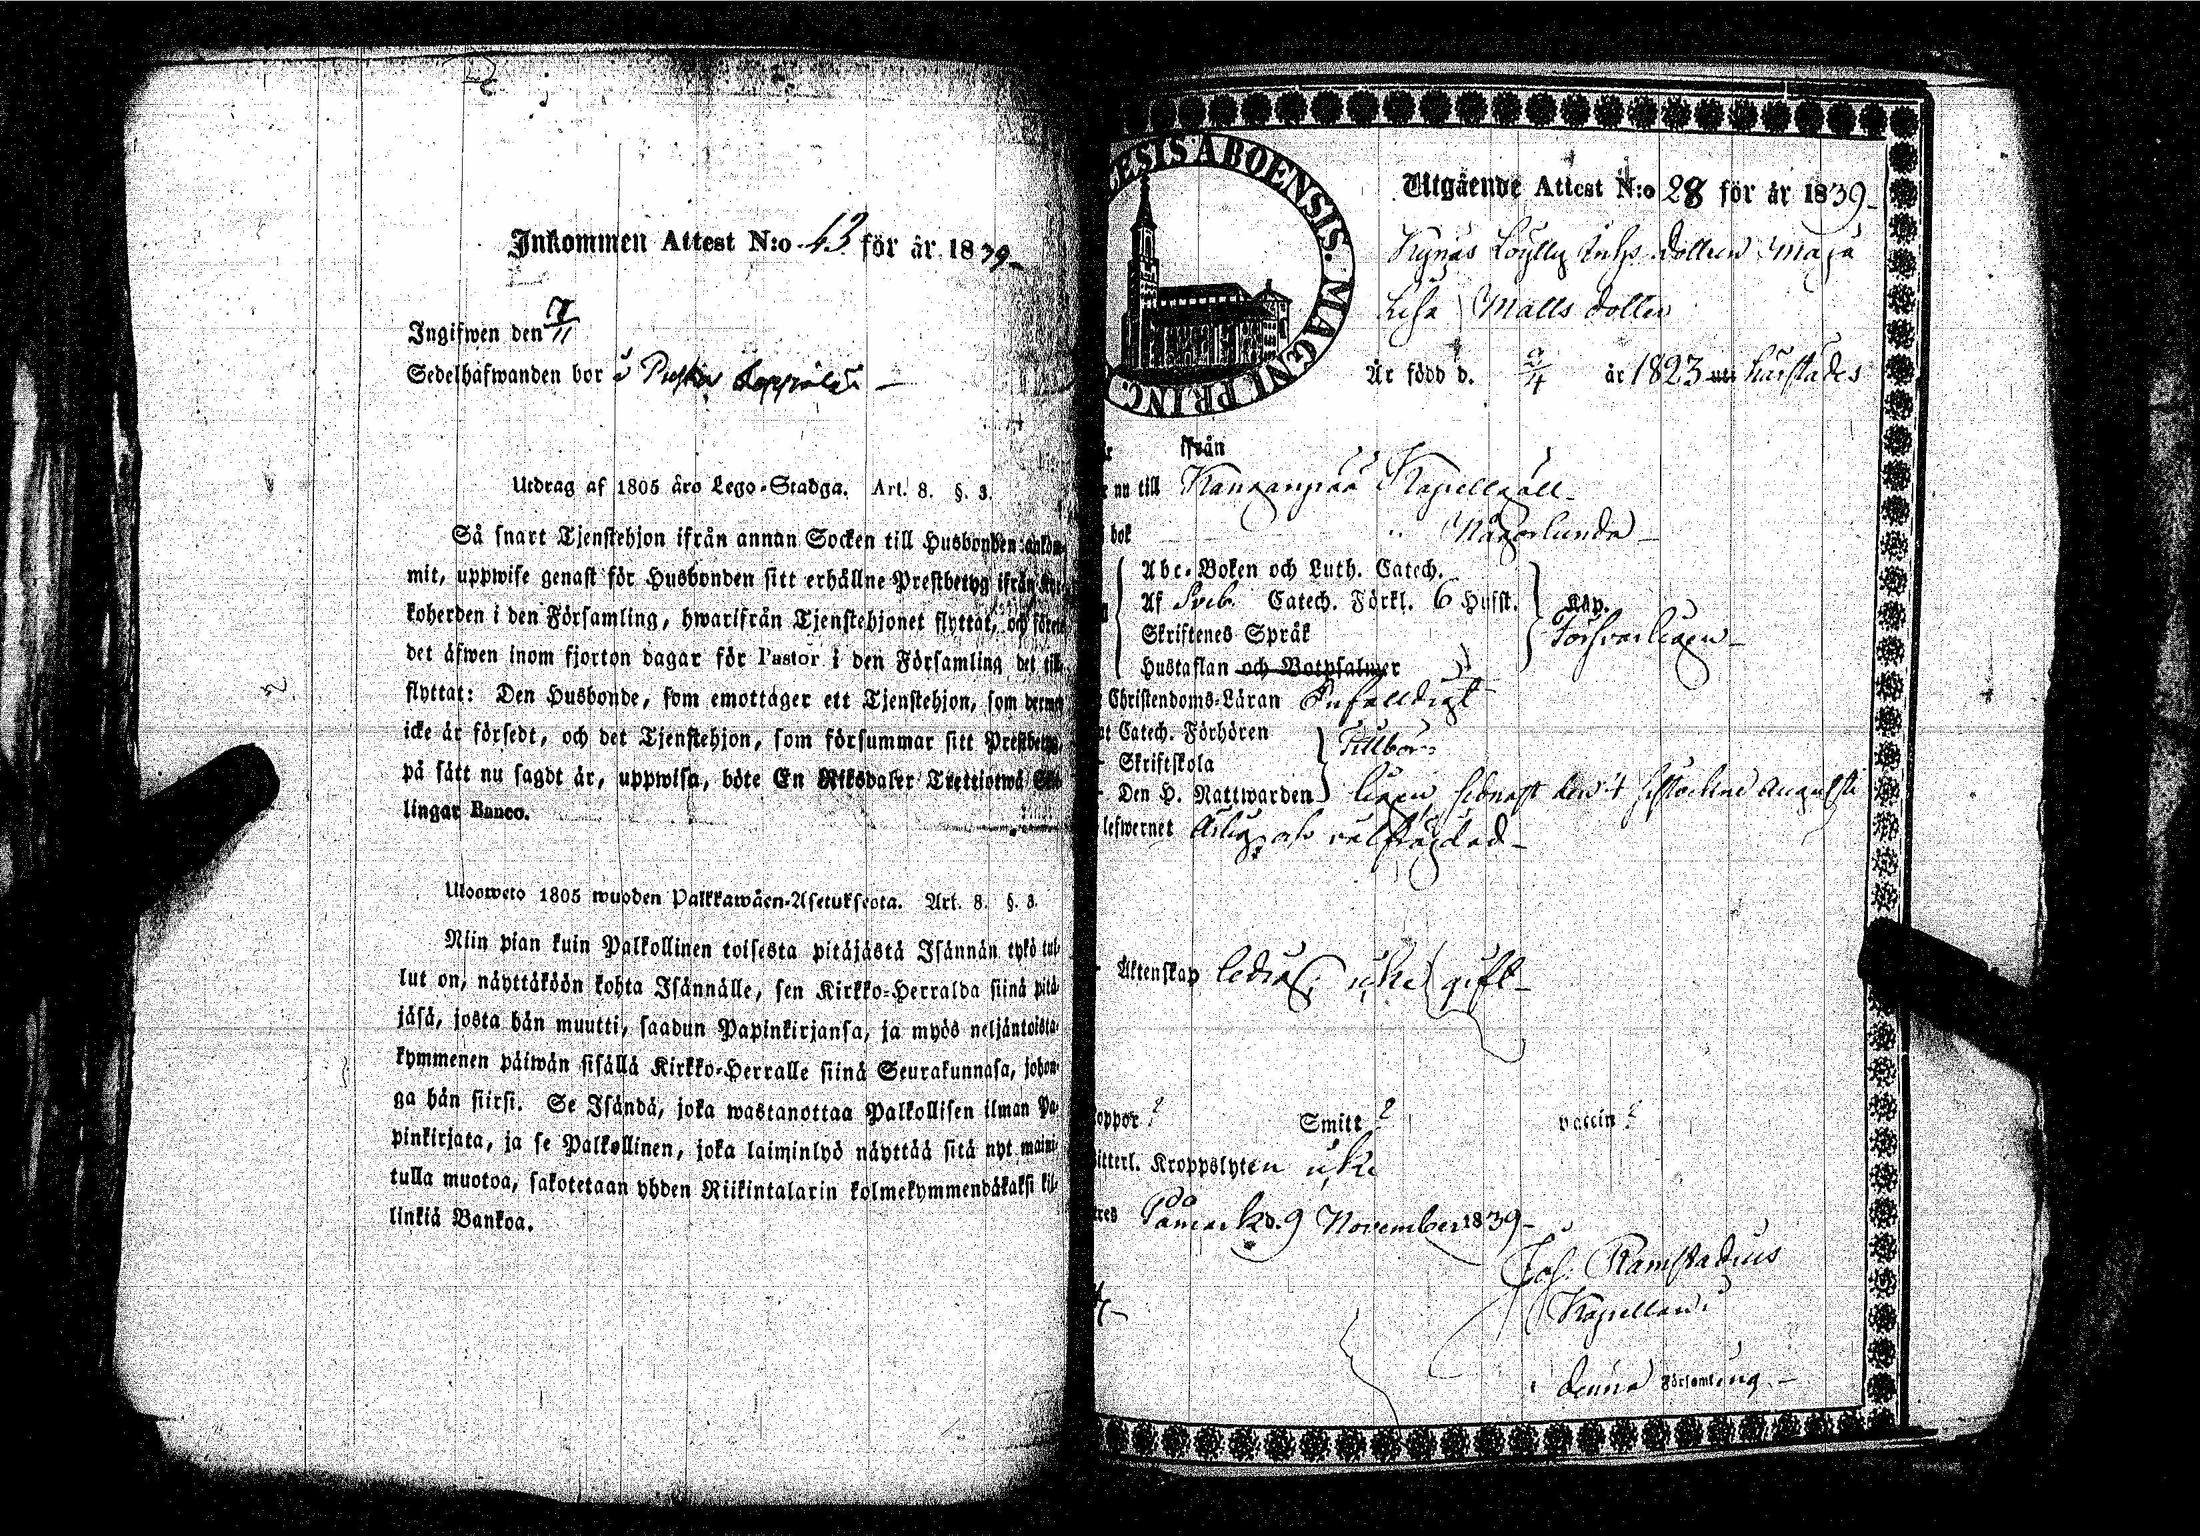 Inkommen Attest N:o 43 för år 1839
Ingifwen den
Sedelhafwanden bor å
Utdrag af 1805 års Lego-Stadga. Art. 8. §. 3.
Så snart Tjenstehjon ifrån annan Socken till Husbonden ankom-
mit, uppwise genast för Husbonden sitt erhållne Prestbetyg ifrån Kyr-
koherden i den Församling, hwarifrån Tjenstehjonet flyttat, och förete
det äfwen inom fjorton dagar för Pastor i den Församling det till-
flyttat: Den Husbonde, som emottager ett Tjenstehjon, som dermed
icke är försedt, och det Tjenstehjon, som försummar sitt Prestbetyg,
på sätt nu sagdt är, uppwisa, böte En Riksdaler Trettiotwå Skil-
lingar Banco.
Uloosweto 1805 wuoden Palkkawäen-Asetuksesta. Art. 8. §. 3.
Niin pian kuin Palkollinen toisesta pitäjästä Isännän tykö tul-
lut on, näyttäköön kohta Isännälle, sen Kirkko-Herralda siinä pitä-
jäsä, josta hän muutti, saadun Papinkirjansa, ja myös neljäntoista-
kymmenen päiwän sisällä Kirkko-Herralle siinä Seurakunnasa, johon-
ga hän siirsi. Se Isändä, joka wastanottaa Palkollisen ilman Pa-
pinkirjata, ja se Palkollinen, joka laiminlyö näyttää sitä nyt maini-
tulla muotoa, sakotetaan yhden Riikintalarin kolmekymmendäkaksi kil-
linkiä Bankoa.
ESIS ABOENSIS. MAGNI PRINC.
Utgående Attest N:o 28 för år 1839
Inhs. dottren Maja
Lisa Matts dotter
Är född d. 2/4 år 1823 härstädes
ifrån
nu till Kangangpää Kapellgäll
bok
Abc-Boken och Luth. Catech.
Af Sveb. Catech. Förkl. 6 Hufst.
Skriftenes Språk
Hustaflan och Botpsalmer
Försvarligen
Christendoms-Läran Enfalldigt
Catech. Förhören
Skriftskola
Tillbör-
Den H. Nattwarden ligen, sednast den 4 sistledne Augusti
lefwernet Ärlig och välfrägdad
Äktenskap ledig, icke gift
oppor ? Smitt ? vaccin ?
itterl. Kroppslyten icke
Påmark d. 9 November 1839
Joh. Ramstadius
Kapellan i
denna Församling.